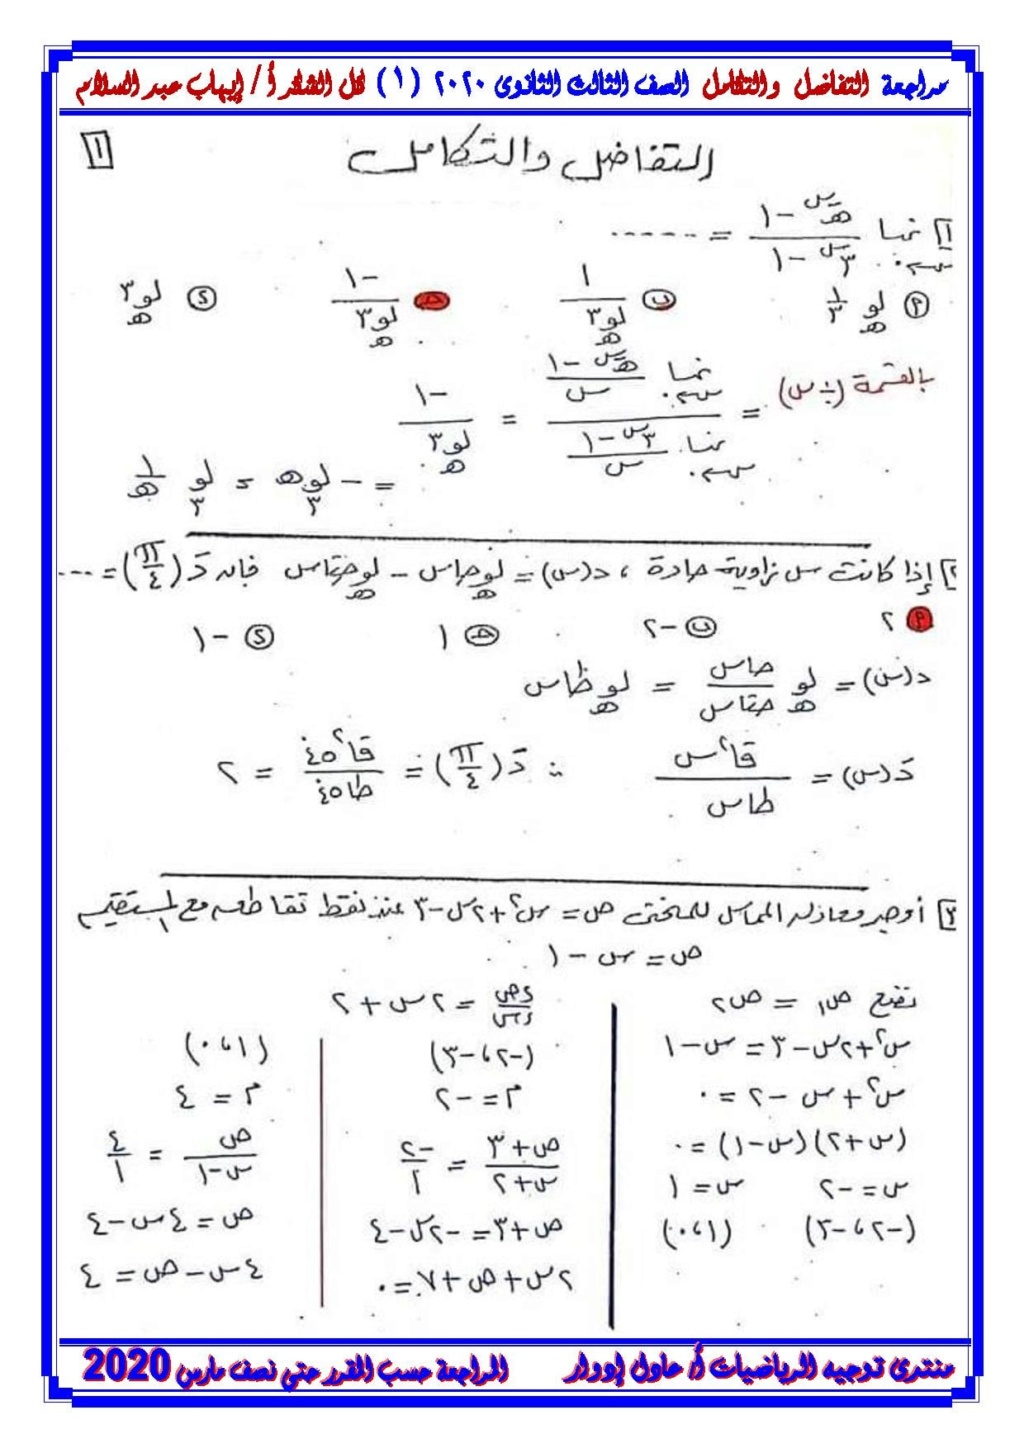 مراجعة التفاضل والتكامل الصف الثالث الثانوى ٢٠٢٠ (١) لكل الشكر أ/ إيهاب عبد السلام
التفاضل والتكامل
١
١] نهــا س←٠ (هـ^-س - ١)/(٣^س - ١) = ......
Ⓟ لو هـ ١/٣ ⓑ ١/لو هـ ٣ ⓙ -١/لو هـ ٣ ⓓ لو هـ ٣
بالقسمة (÷ س) = (نهــا س←٠ (هـ^-س - ١)/س)/(نهــا س←٠ (٣^س - ١)/س) = -١/لو هـ ٣
= - لو ٣ هـ = لو ٣ ١/هـ
٢] إذا كانت س زاوية حادة ، د(س) = لو هـ جاس - لو هـ جتاس فإن دَ(π/٤) = ...
Ⓟ ٢ ⓑ -٢ ⓙ ١ ⓓ -١
د(س) = لو هـ جاس/جتاس = لو هـ ظاس
دَ(س) = قا٢س/طاس ∴ دَ(π/٤) = قا٢ ٤٥/طا ٤٥ = ٢
٣] أوجد معادلة المماس للمنحنى ص = س٢ + ٢س - ٣ عند نقط تقاطعه مع المستقيم
ص = س - ١
نضع ص١ = ص٢
س٢ + ٢س - ٣ = س - ١
س٢ + س - ٢ = ٠
(س + ٢)(س - ١) = ٠
س = -٢ س = ١
(-٢، -٣) (١، ٠)
ءص/ءس = ٢س + ٢
(-٢، -٣)
م = -٢
(ص + ٣)/(س + ٢) = -٢/١
ص + ٣ = -٢س - ٤
٢س + ص + ٧ = ٠
(١، ٠)
م = ٤
ص/(س - ١) = ٤/١
ص = ٤س - ٤
٤س - ص = ٤
منتدى توجيه الرياضيات أ/ عادل إدوار
المراجعة حسب المقرر حتي نصف مارس 2020